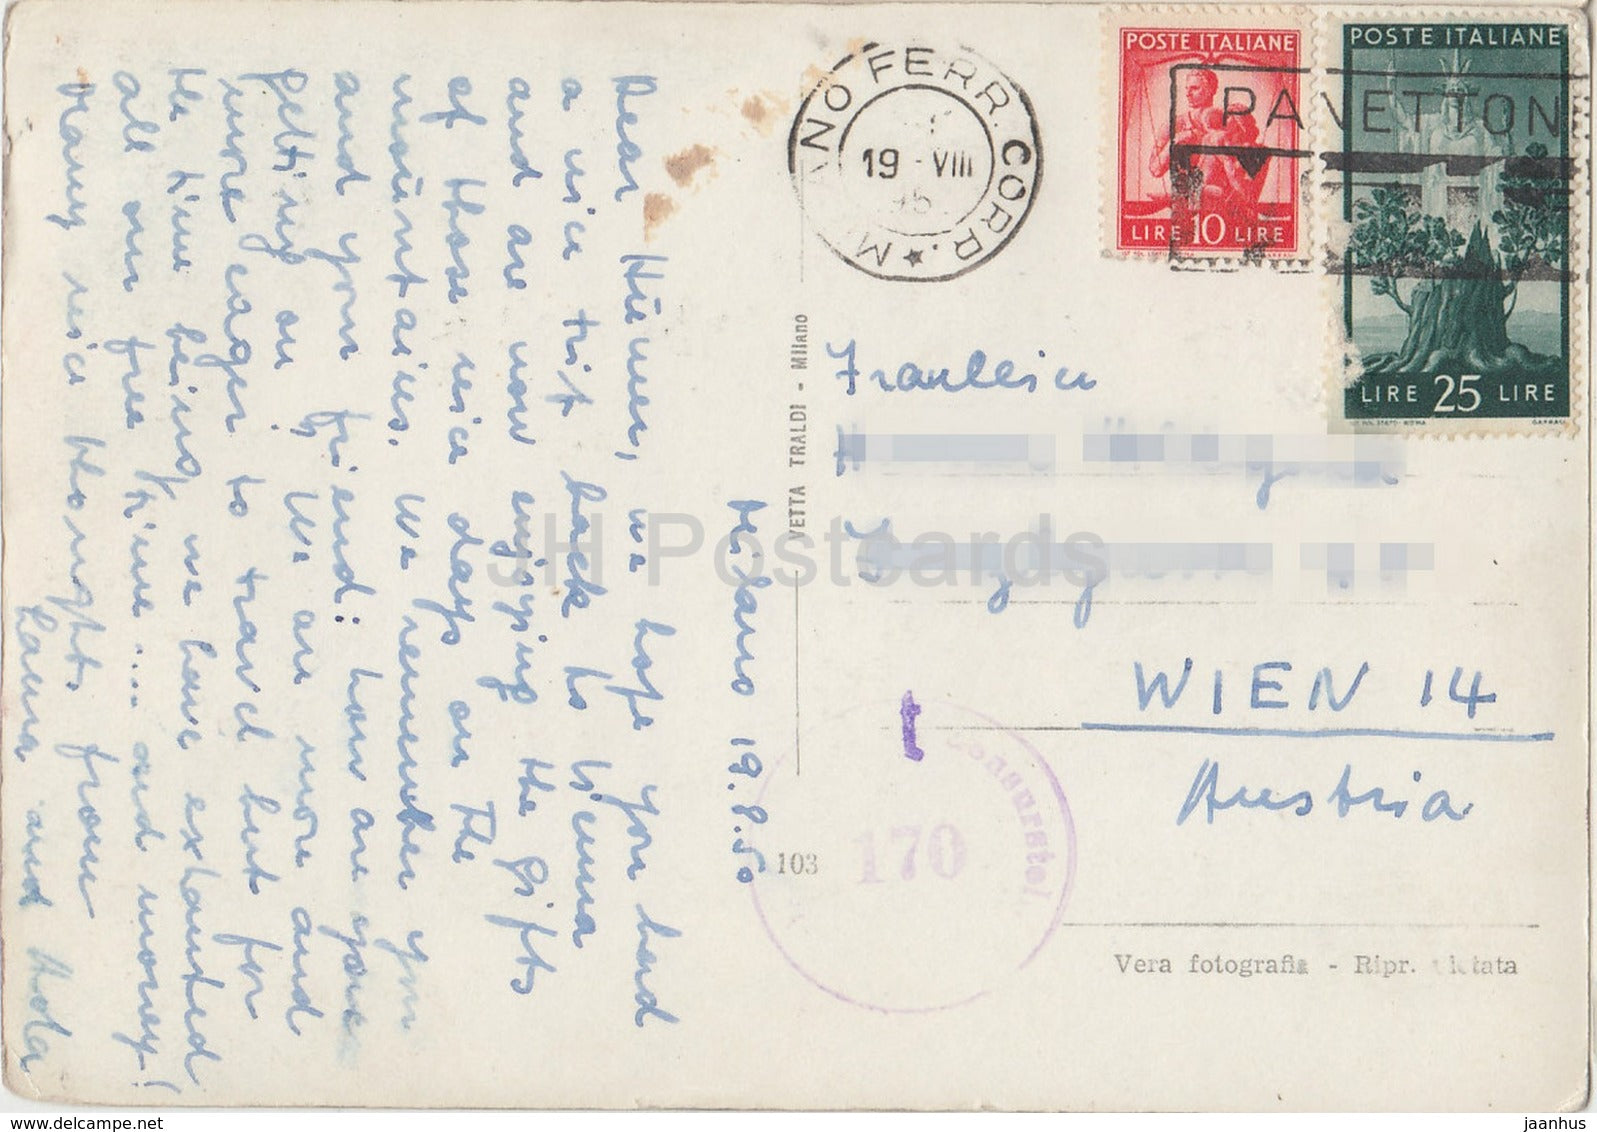 Milano 19.8.50
Dear Hümer, we hope you had
a nice trip back to Vienna
and are now enjoying the gifts
of those nice days on the
mountains. We remember you
and your friend: how are you
getting on? We are more and
more eager to travel but for
the time being we have exhausted
all our free time.... and money!
Many nice thoughts from
and
POSTE ITALIANE
LIRE 10 LIRE
POSTE ITALIANE
LIRE 25 LIRE
ANO FERR. CORR.
19 - VIII
PANETTON
Fraulein
WIEN 14
Austria
VETTA TRALDI - Milano
103
170
Vera fotografia - Ripr.
JH Postcards
delcampe.net
jaanhus